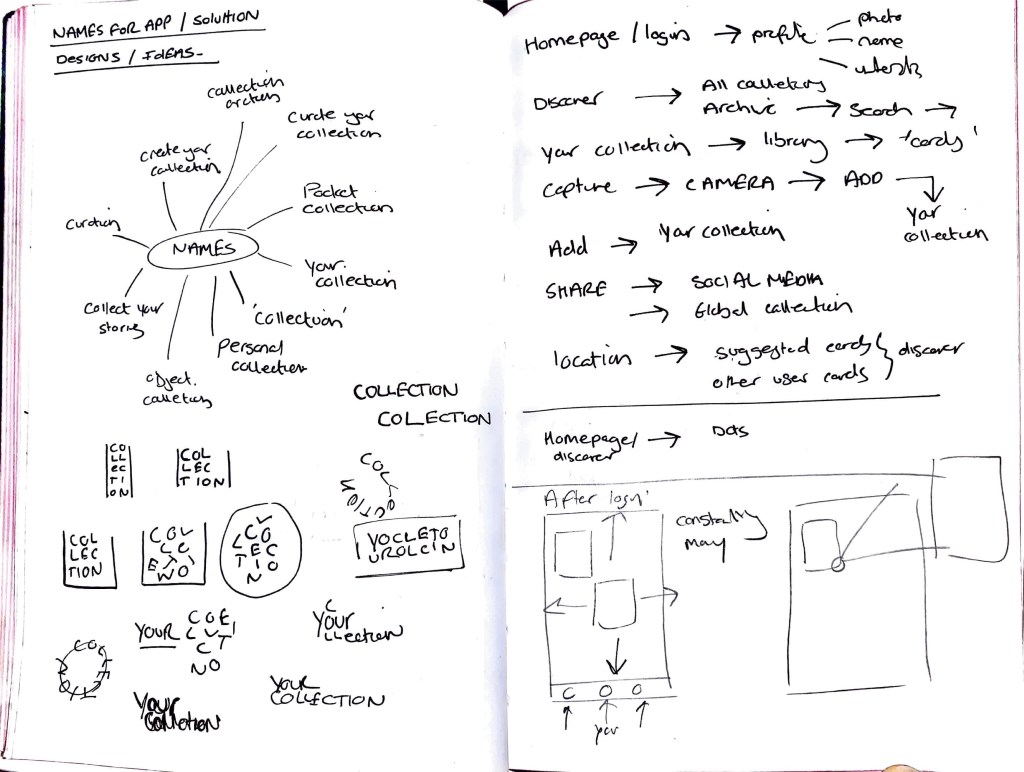 NAMES FOR APP / SOLUTION
DESIGNS / IDEAS-
collection
archive
curate your
collection
create your
collection
Pocket
collection
curation
NAMES
Your
collection
Collect your
stories
'Collection'
Personal
collection
object
collection
COLLECTION
COLECTION
CO
LL
EC
TI
ON
COL
LEC
TION
COL
LEC
TION
YOCLETO
UROLCIN
YOUR
YOUR
LLECTION
YOUR
COLLECTION
YOUR
COLLECTION
Homepage / login → profile
photo
name
interests
DISCOVER → All collections
Archive → Search →
your collection → library → 'cards'
capture → CAMERA → ADD
your
collection
Add → Your collection
SHARE → SOCIAL MEDIA
→ Global collection
location → suggested cards
other user cards
discover
Homepage/
discover →
After login'
constantly
C O O
your